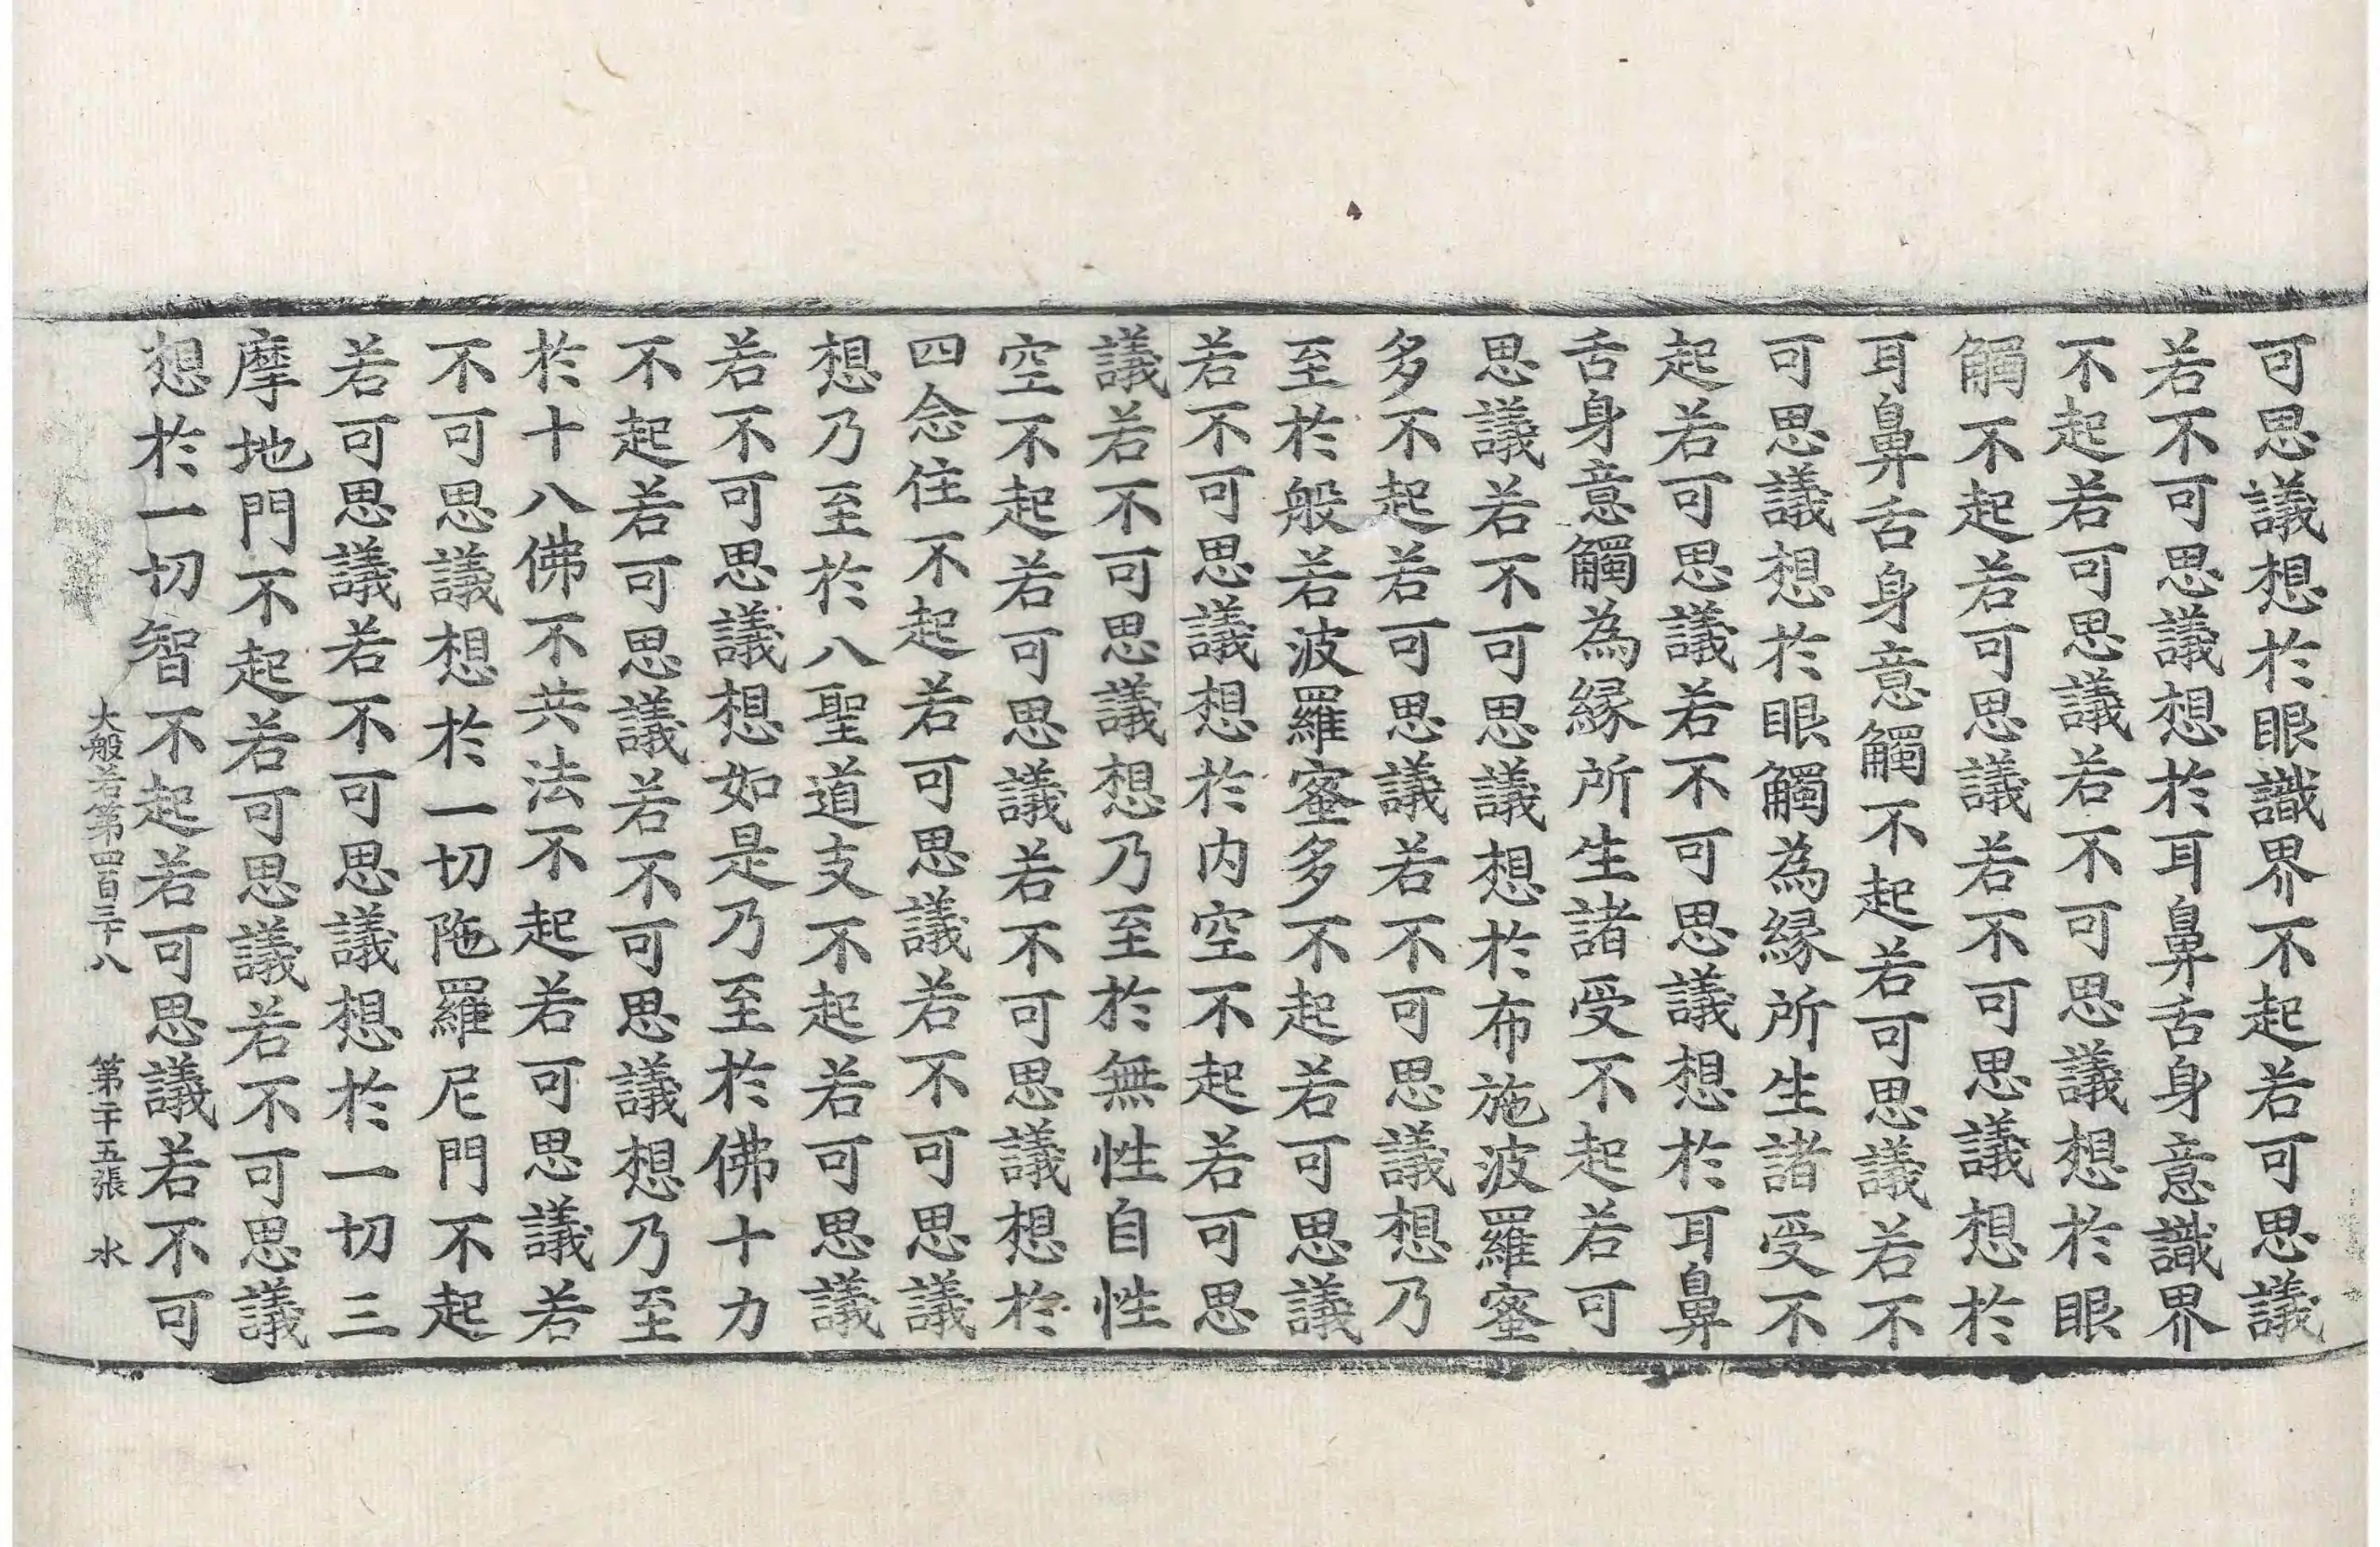 可思議想於眼識界不起若可思議
若不可思議想於耳鼻舌身意識界
不起若可思議若不可思議想於眼
觸不起若可思議若不可思議想於
耳鼻舌身意觸不起若可思議若不
可思議想於眼觸為緣所生諸受不
起若可思議若不可思議想於耳鼻
舌身意觸為緣所生諸受不起若可
思議若不可思議想於布施波羅蜜
多不起若可思議若不可思議想乃
至於般若波羅蜜多不起若可思議
若不可思議想於内空不起若可思
議若不可思議想乃至於無性自性
空不起若可思議若不可思議想於
四念住不起若可思議若不可思議
想乃至於八聖道支不起若可思議
若不可思議想如是乃至於佛十力
不起若可思議若不可思議想乃至
於十八佛不共法不起若可思議若
不可思議想於一切陁羅尼門不起
若可思議若不可思議想於一切三
摩地門不起若可思議若不可思議
想於一切智不起若可思議若不可
大般若第四百二十八 第二十五張 水